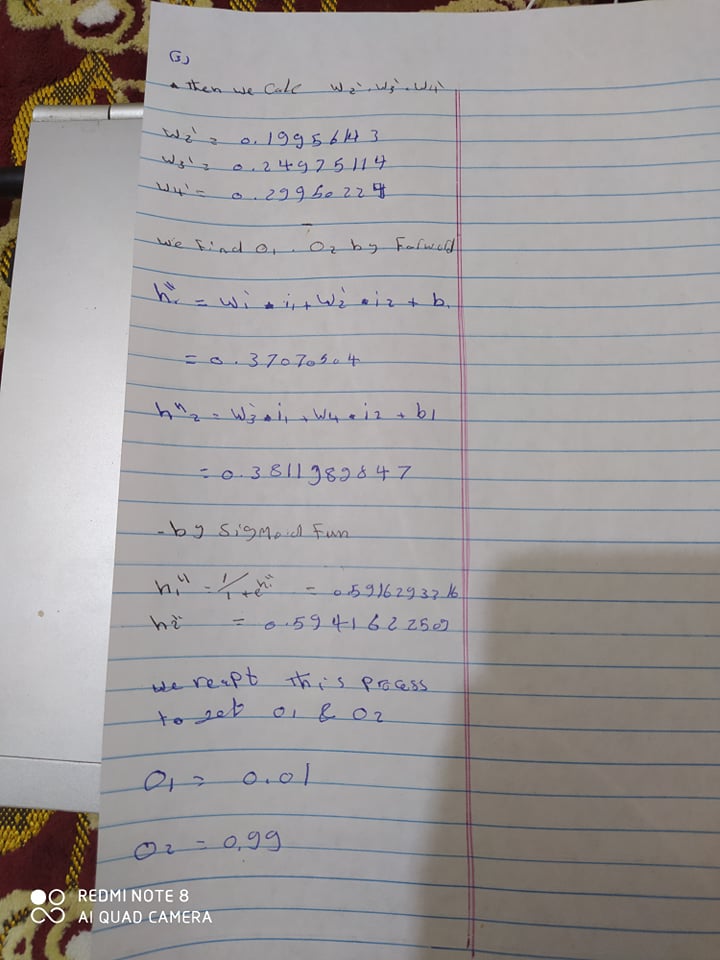 (3)
• then we calc w₂' . w₃' . w₄'
w₂' = 0.19956143
w₃' = 0.24975114
w₄' = 0.2995022
we find O₁ . O₂ by Forword
h₁" = w₁' • i₁ + w₂' • i₂ + b₁
= 0.37070504
h"₂ = w₃' • i₁ + w₄ • i₂ + b₁
= 0.3811989847
- by Sigmoid Fun
h₁" = 1/1+e^h₁" = 0.5916293216
h₂" = 0.5941622509
we reapt this process
to get O₁ & O₂
O₁ = 0.01
O₂ = 0.99
REDMI NOTE 8
AI QUAD CAMERA